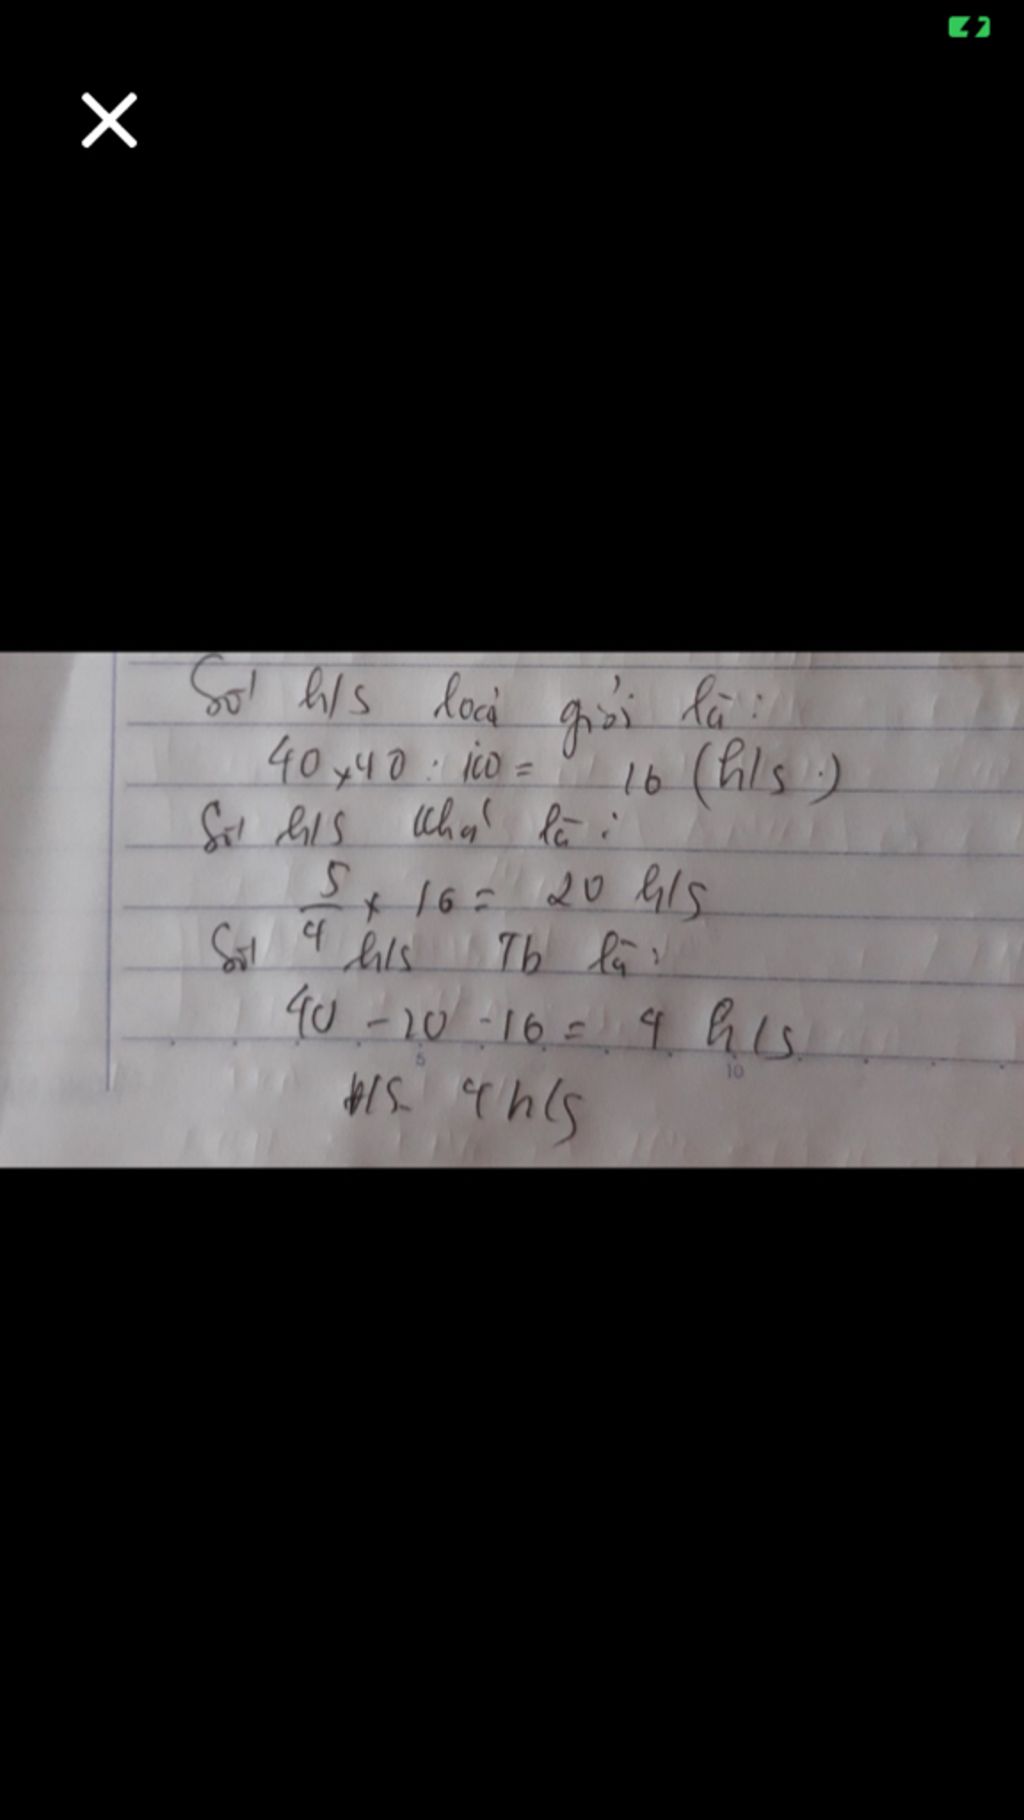 Số h/s loại giỏi là:
40 x 40 : 100 = 16 (h/s.)
Số h/s khá là:
5/4 x 16 = 20 h/s
Số h/s Tb là:
40 - 20 - 16 = 4 h/s
5 10
Đ/S 4 h/s